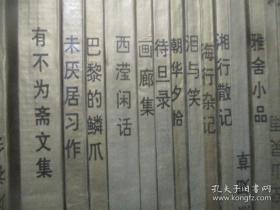 有不为斋文集
未厌居习作
巴黎的鳞爪
西滢闲话
画廊集
待旦录
朝华夕拾
泪与笑
海行杂记
湘行散记
雅舍小品